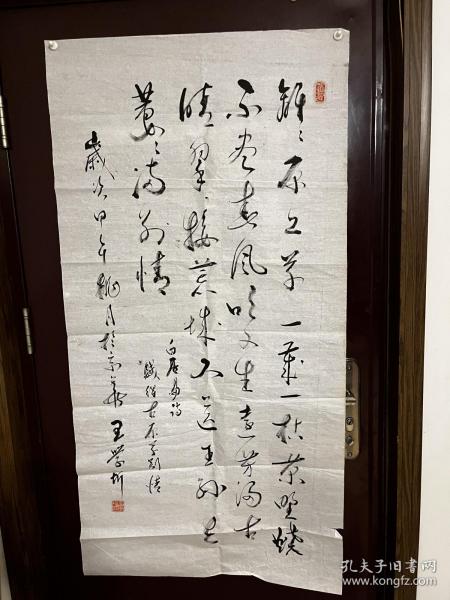 離〻原上草一歲一枯榮野燒
不盡春風吹又生遠芳侵古
晴翠接荒城又送王孫去
萋〻滿別情
白居易詩
賦得古原草別情
歲次甲午桃月於京華 王学圻
孔夫子旧书网
www.kongfz.com